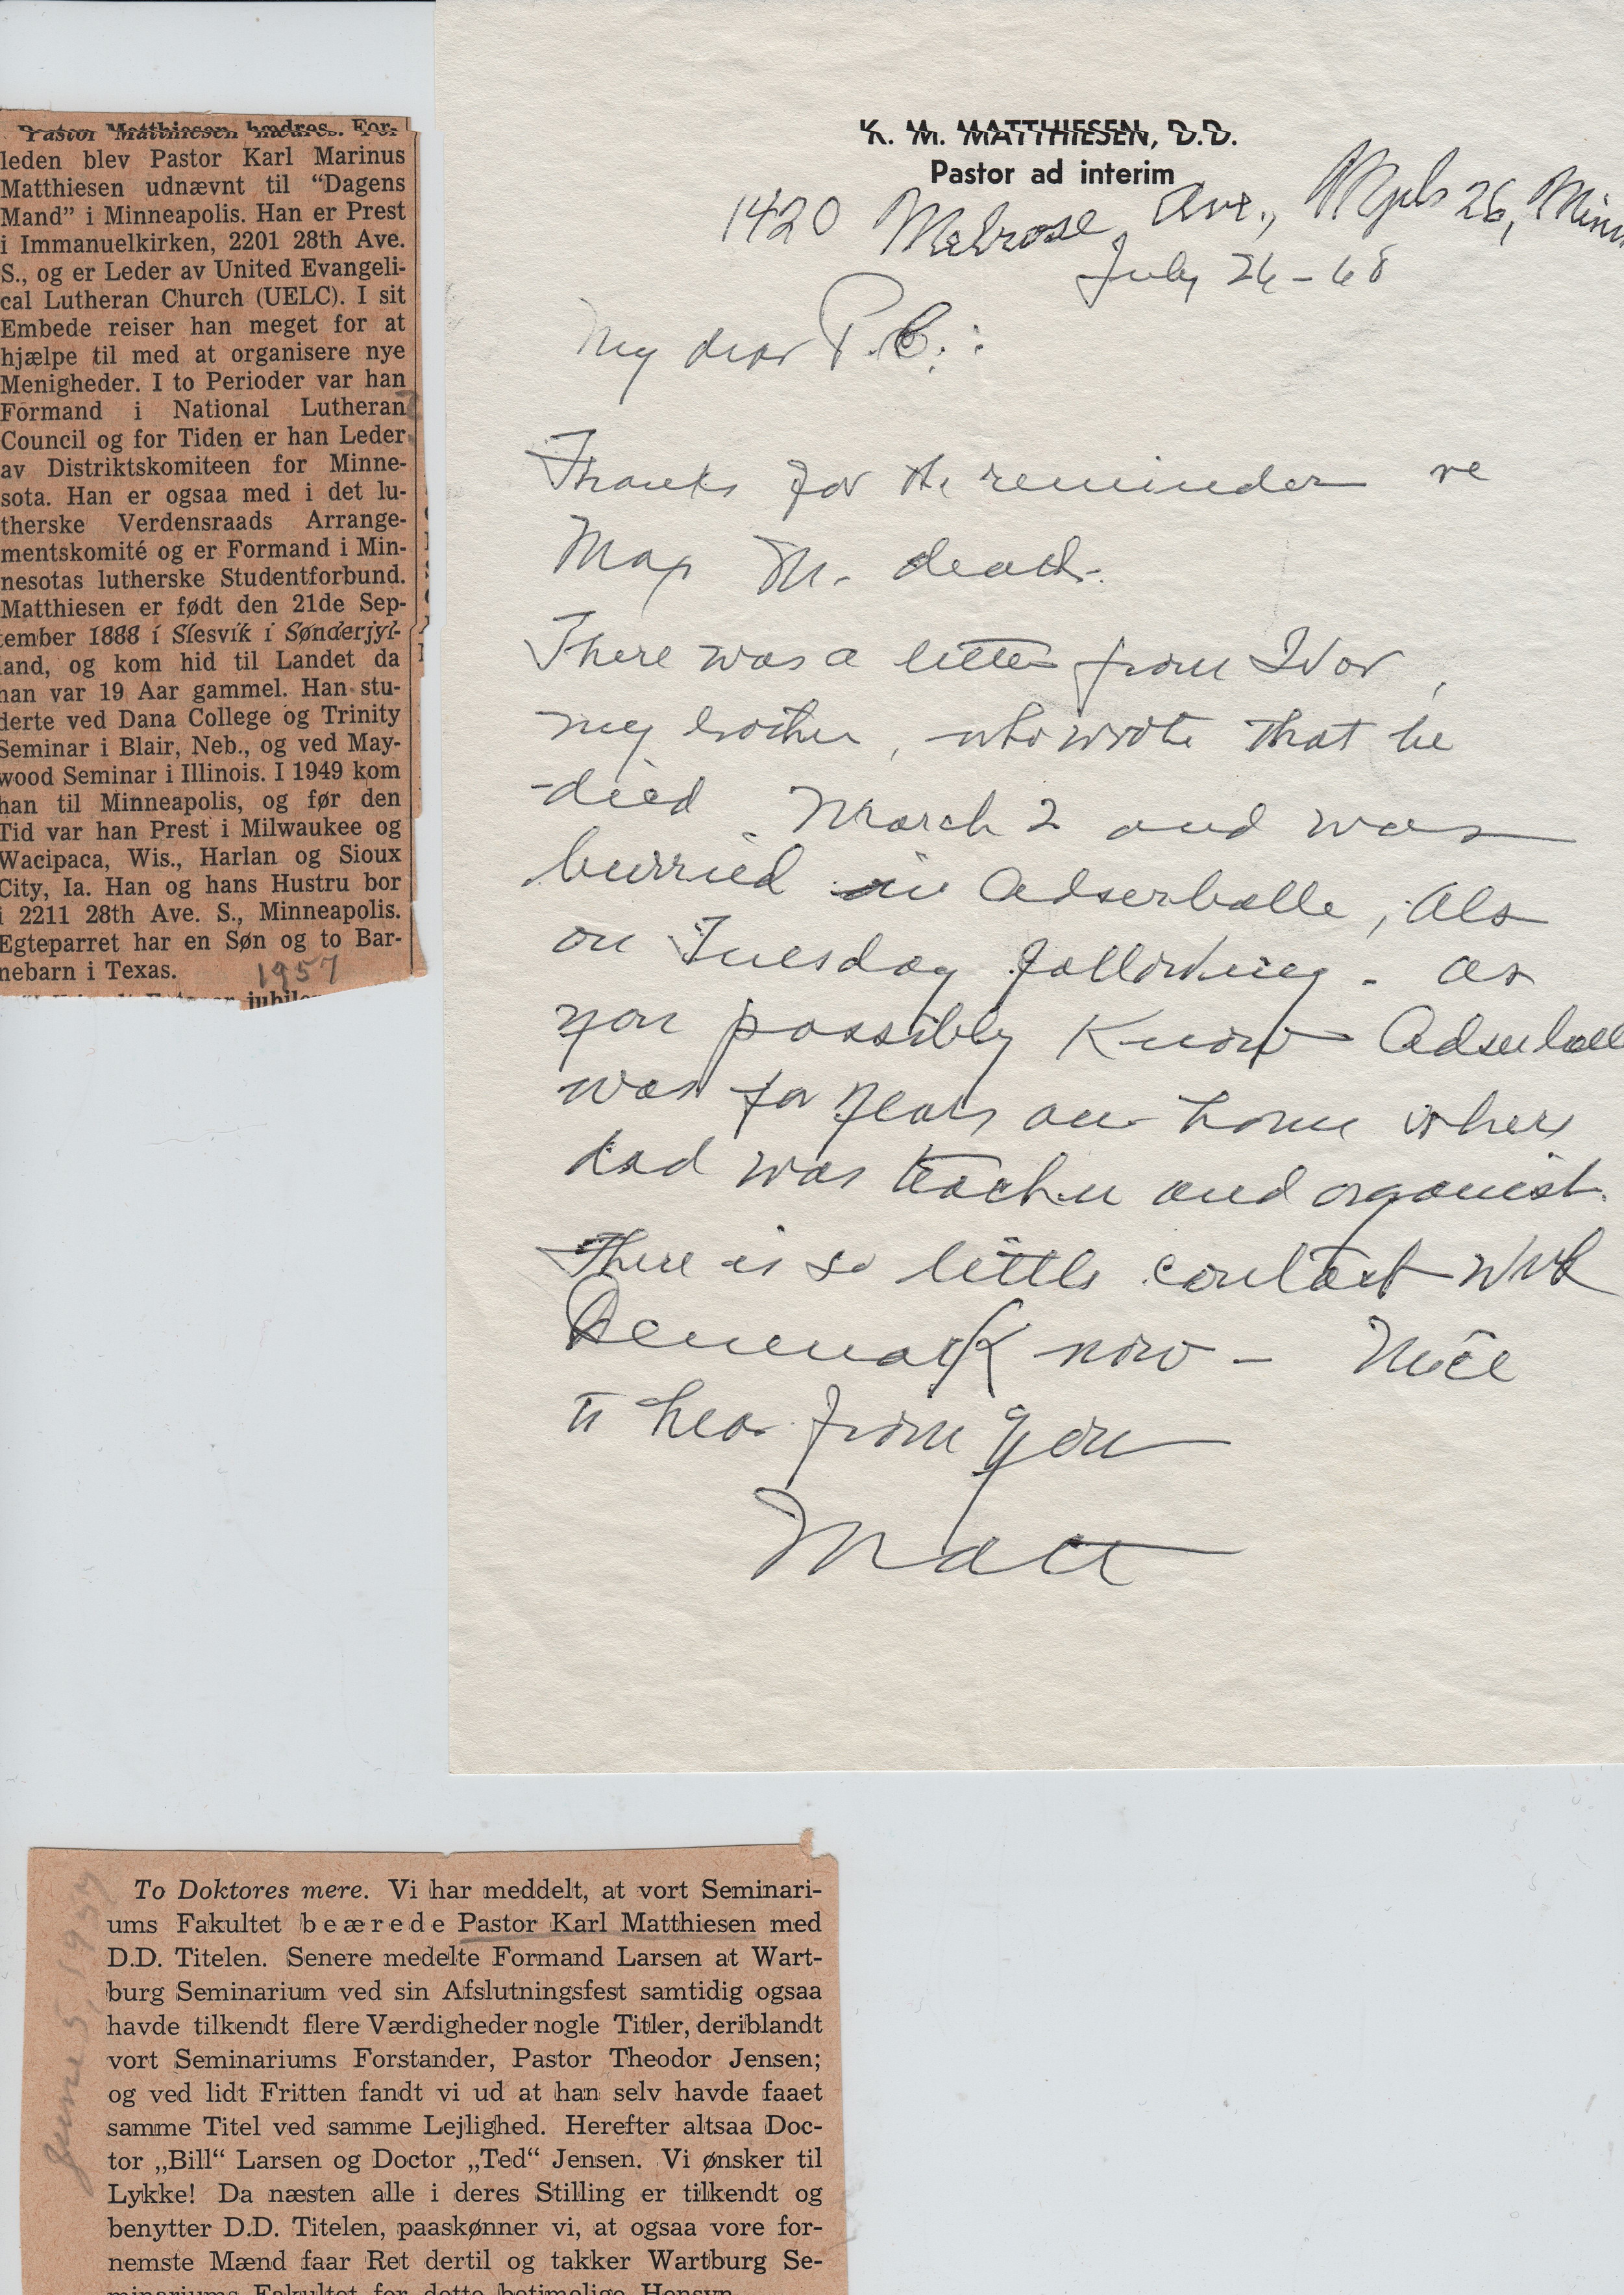 Pastor Matthiesen hædres. For-
leden blev Pastor Karl Marinus
Matthiesen udnævnt til “Dagens
Mand” i Minneapolis. Han er Prest
i Immanuelkirken, 2201 28th Ave.
S., og er Leder av United Evangeli-
cal Lutheran Church (UELC). I sit
Embede reiser han meget for at
hjælpe til med at organisere nye
Menigheder. I to Perioder var han
Formand i National Lutheran
Council og for Tiden er han Leder
av Distriktskomiteen for Minne-
sota. Han er ogsaa med i det lu-
therske Verdensraads Arrange-
mentskomité og er Formand i Min-
nesotas lutherske Studentforbund.
Matthiesen er født den 21de Sep-
tember 1888 i Slesvik i Sønderjyl-
land, og kom hid til Landet da
han var 19 Aar gammel. Han stu-
derte ved Dana College og Trinity
Seminar i Blair, Neb., og ved May-
wood Seminar i Illinois. I 1949 kom
han til Minneapolis, og før den
Tid var han Prest i Milwaukee og
Wacipaca, Wis., Harlan og Sioux
City, Ia. Han og hans Hustru bor
i 2211 28th Ave. S., Minneapolis.
Egteparret har en Søn og to Bar-
nebarn i Texas.
1957
K. M. MATTHIESEN, D.D.
Pastor ad interim
1420 Melrose Ave., Mpls 26, Minn
July 26-68
My dear P.C.:
Thanks for the reminder re
Max M. death.
There was a letter from Ivor,
my brother, who wrote that he
died March 2 and was
burried in Adserballe, Als
on Tuesday following. As
you possibly know Adserball
was for years our home where
dad was teacher and organist.
There is so little contact with
Denmark now - Nice
to hear from you
Matt
June 5, 1957
To Doktores mere. Vi har meddelt, at vort Seminari-
ums Fakultet beærede Pastor Karl Matthiesen med
D.D. Titelen. Senere medelte Formand Larsen at Wart-
burg Seminarium ved sin Afslutningsfest samtidig ogsaa
havde tilkendt flere Værdigheder nogle Titler, deriblandt
vort Seminariums Forstander, Pastor Theodor Jensen;
og ved lidt Fritten fandt vi ud at han selv havde faaet
samme Titel ved samme Lejlighed. Herefter altsaa Doc-
tor „Bill“ Larsen og Doctor „Ted“ Jensen. Vi ønsker til
Lykke! Da næsten alle i deres Stilling er tilkendt og
benytter D.D. Titelen, paaskønner vi, at ogsaa vore for-
nemste Mænd faar Ret dertil og takker Wartburg Se-
minariums Fakultet for dette betimelige Hensyn.